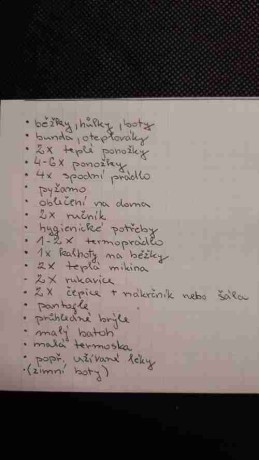 • běžky, hůlky, boty
• bunda, oteplováky
• 2x teplé ponožky
• 4-6x ponožky
• 4x spodní prádlo
• pyžamo
• oblečení na doma
• 2x ručník
• hygienické potřeby
• 1-2x termoprádlo
• 1x kalhoty na běžky
• 2x teplá mikina
• 2x rukavice
• 2x čepice + nákrčník nebo šála
• pantofle
• průhledné brýle
• malý batoh
• malá termoska
• popř. užívané léky
• (zimní boty)